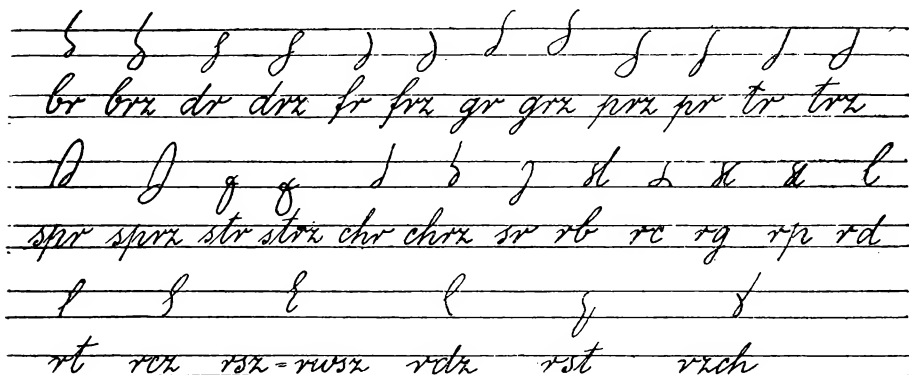 br brz dr drz fr frz gr grz prz pr tr trz
spr sprz str strz chr chrz sr rb rc rg rp rd
rt rcz rsz = rwsz rdz rst rzch